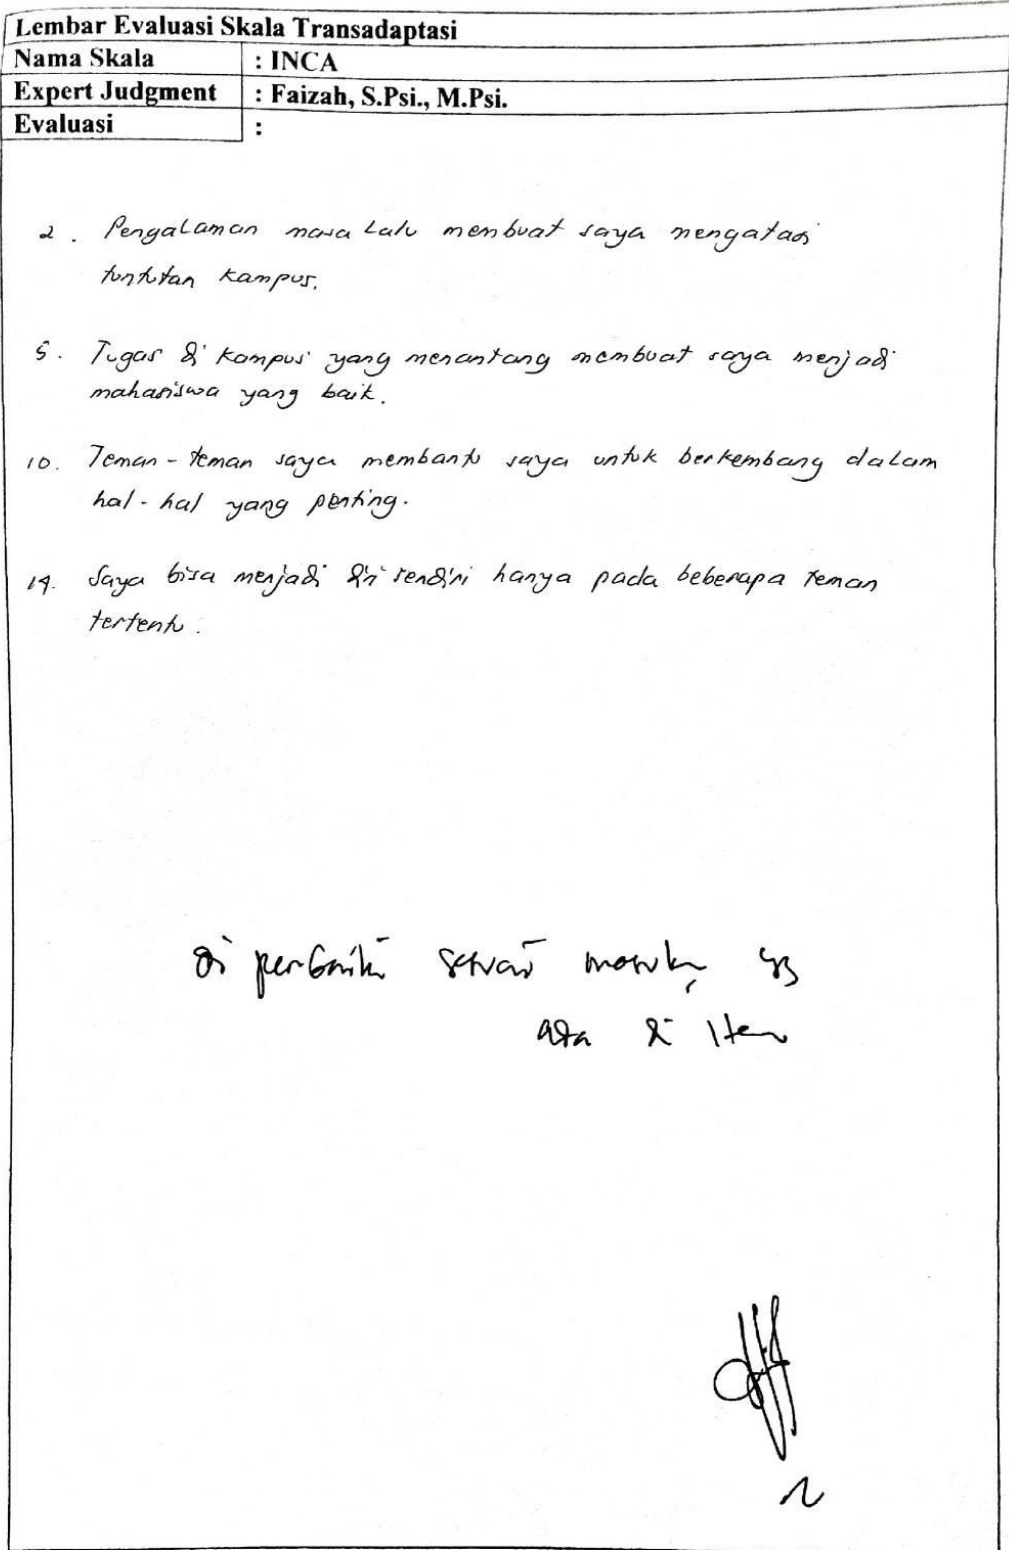 Lembar Evaluasi Skala Transadaptasi
Nama Skala : INCA
Expert Judgment : Faizah, S.Psi., M.Psi.
Evaluasi :
2. Pengalaman masa lalu membuat saya mengatasi
tuntutan kampus.
5. Tugas di kampus yang menantang membuat saya menjadi
mahasiswa yang baik.
10. Teman-teman saya membantu saya untuk berkembang dalam
hal-hal yang penting.
14. Saya bisa menjadi diri sendiri hanya pada beberapa teman
tertentu.
di perbaiki sesuai masukan yg
ada di item